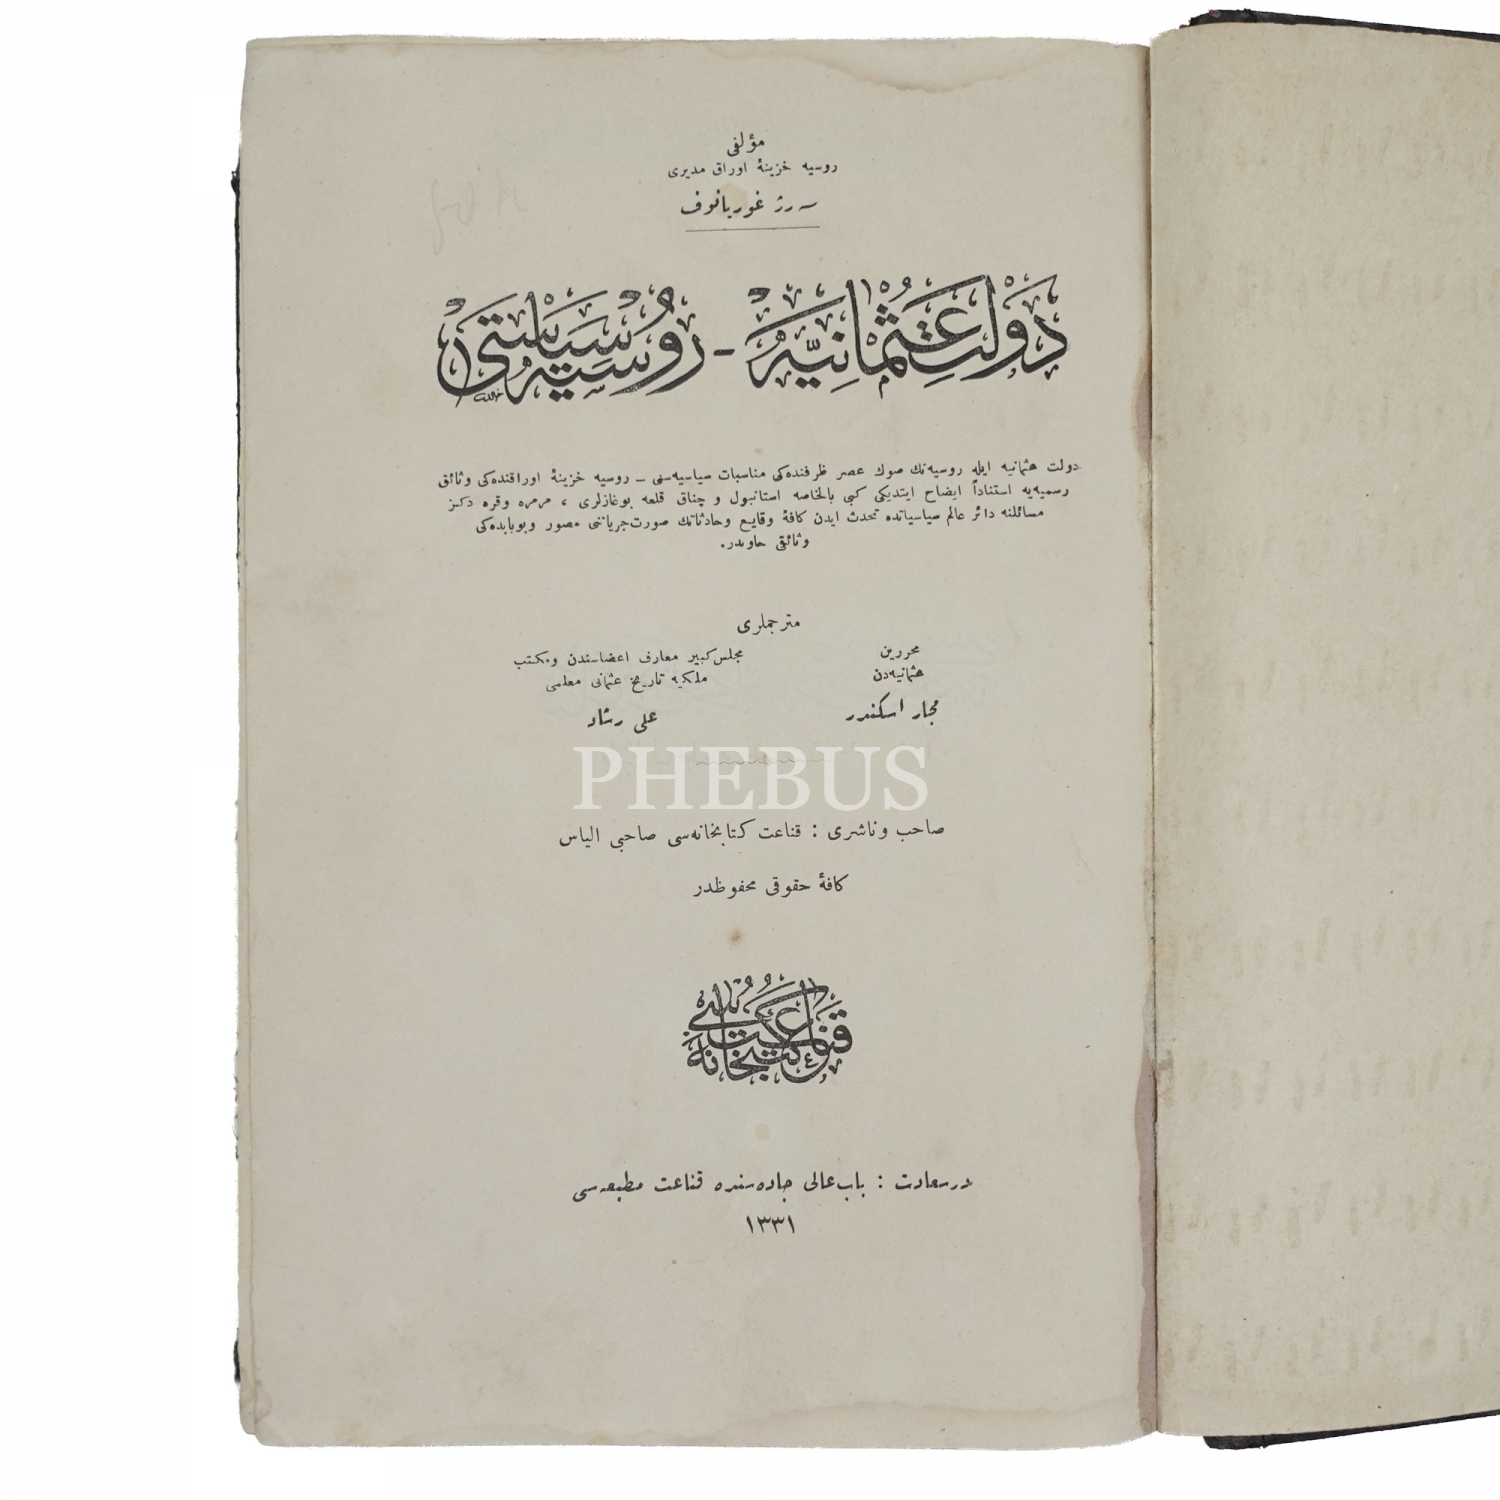 مؤلفی
روسیه خزینهٔ اوراق مدیری
سەرژ غوریانوف
دولت عثمانیه - روسیه سیاستی
دولت عثمانیه ایله روسیه‌نك صوك عصر ظرفنده‌کی مناسبات سیاسیه‌سنی ـ روسیه خزینهٔ اوراقنده‌کی وثائق
رسمیه‌یه استناداً ایضاح ایتدیکی کبی بالخاصه استانبول و چناق قلعه بوغازلری ، مرمره وقره دکز
مسائلنه دائر عالم سیاسیاتده تحدث ایدن کافهٔ وقایع وحادثاتك صورت‌جریاننی مصور وبوبابده‌کی
وثائقی حاویدر.
مترجملری
محررین
عثمانیه‌دن
مجار اسکندر
مجلس‌کبیر معارف اعضاسندن ومکتب
ملکیه تاریخ عثمانی معلمی
علی رشاد
PHEBUS
صاحب وناشری : قناعت کتابخانه‌سی صاحبی الیاس
کافهٔ حقوقی محفوظدر
قناعت کتبخانه‌سی
درسعادت : باب‌عالی جاده‌سنده قناعت مطبعه‌سی
١٣٣١